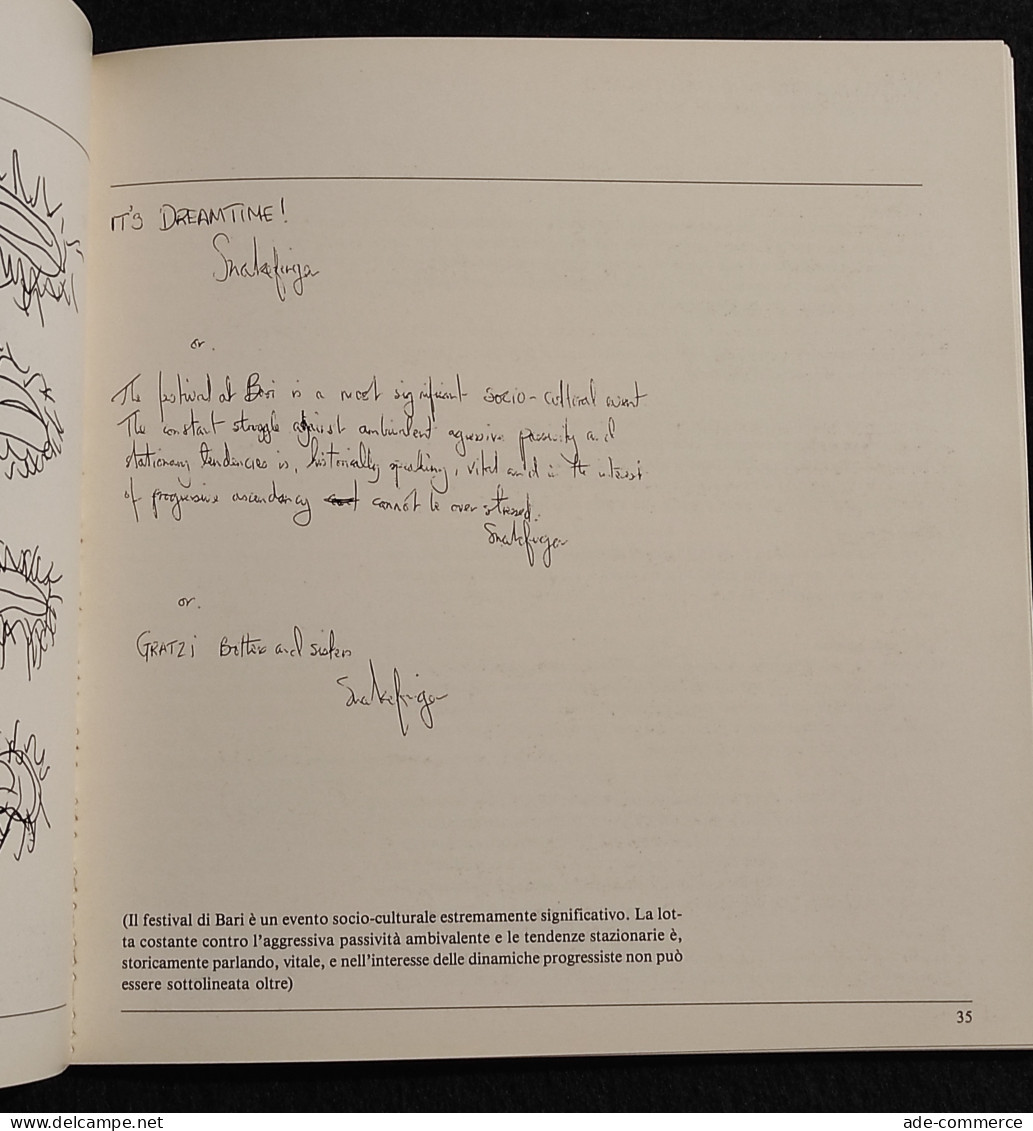 IT'S DREAMTIME!
Snakefinger
or.
The festival at Bari is a most significant socio-cultural event
The constant struggle against ambivalent agressive passivity and
stationary tendencies is, historically speaking, vital and in the interest
of progressive ascendancy cannot be over stressed.
Snakefinger
or.
GRATZI and sisters
Snakefinger
(Il festival di Bari è un evento socio-culturale estremamente significativo. La lot-
ta costante contro l'aggressiva passività ambivalente e le tendenze stazionarie è,
storicamente parlando, vitale, e nell'interesse delle dinamiche progressiste non può
essere sottolineata oltre)
35
www.delcampe.net
ade-commerce